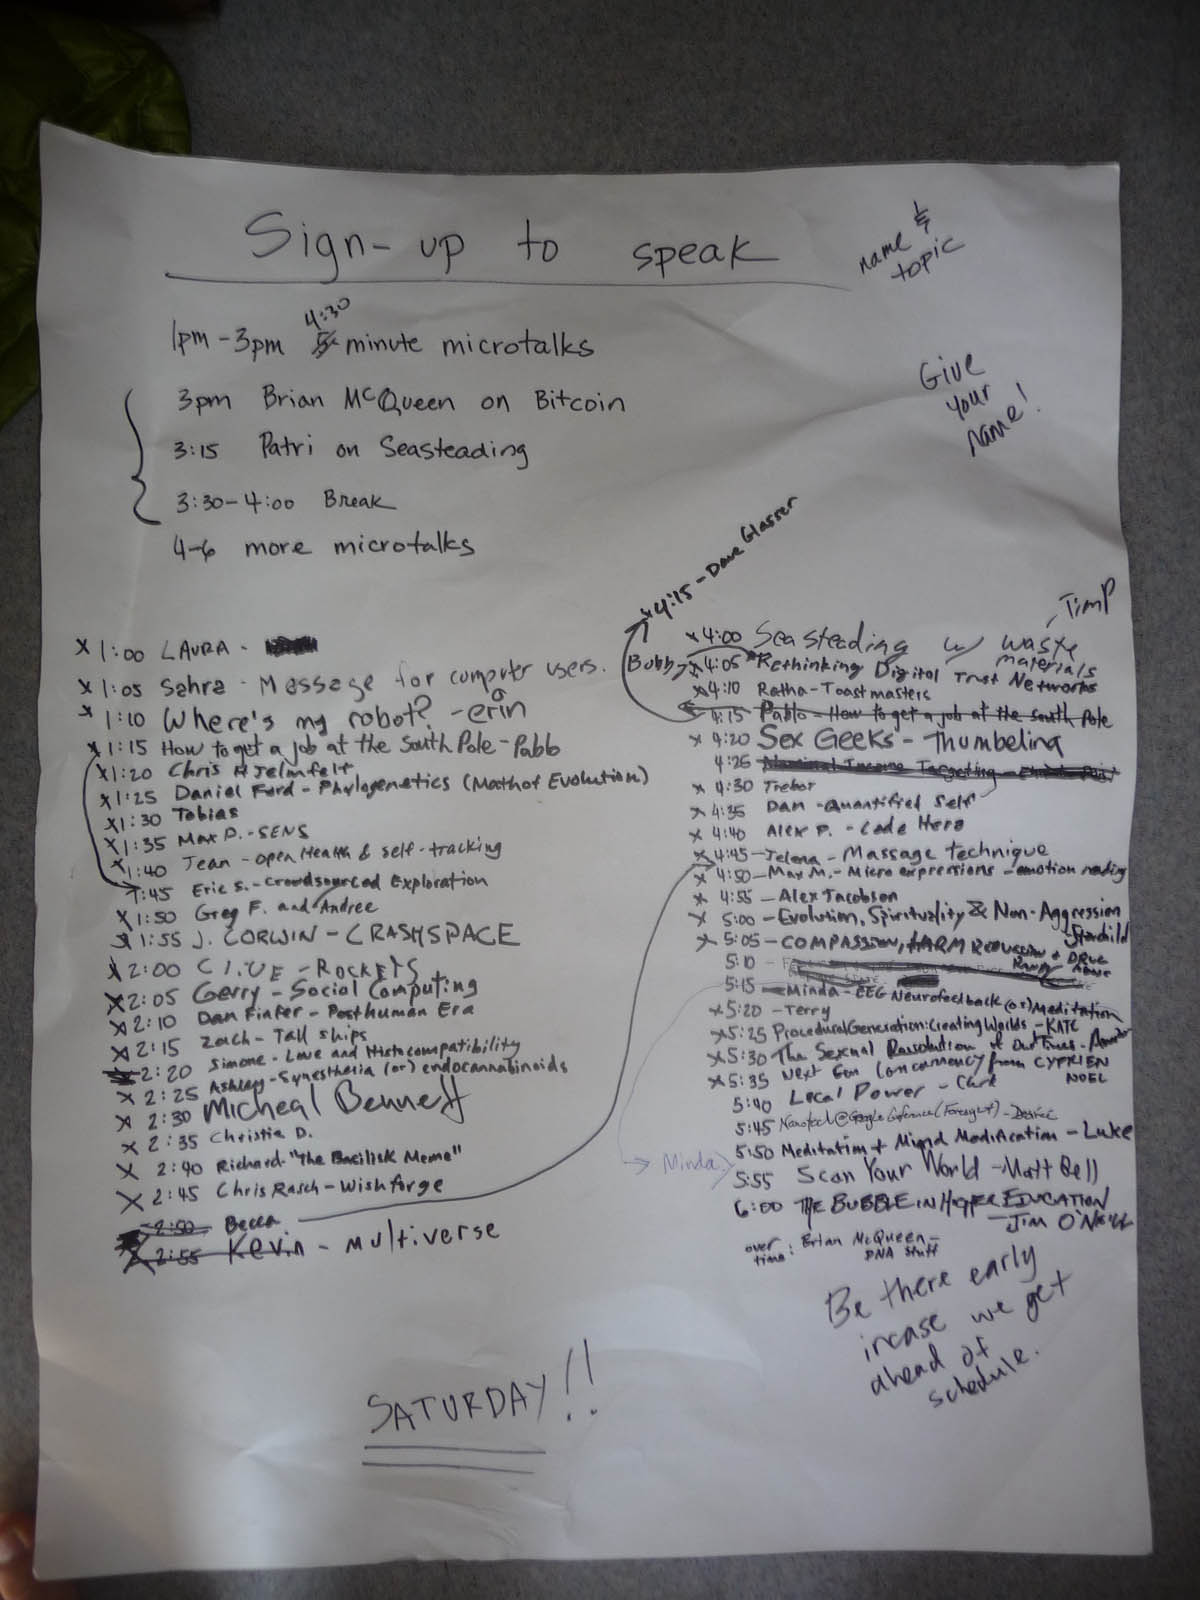 Sign-up to speak
name & topic
1pm-3pm 4:30 minute microtalks
Give your name!
3pm Brian McQueen on Bitcoin
3:15 Patri on Seasteading
3:30-4:00 Break
4-6 more microtalks
x 1:00 LAURA -
x 1:05 Sahra - Message for computer users.
x 1:10 Where's my robot? - erin
x 1:15 How to get a job at the South Pole - Pablo
x 1:20 Chris Hjelmfelt
x 1:25 Daniel Ford - Phylogenetics (Math of Evolution)
x 1:30 Tobias
x 1:35 Max P. - SENS
x 1:40 Jean - open Health & self-tracking
1:45 Eric S. - Crowdsourced Exploration
x 1:50 Greg F. and Andree
x 1:55 J. CORWIN - CRASHSPACE
x 2:00 CLIVE - ROCKETS
x 2:05 Gerry - Social Computing
x 2:10 Dan Finfer - Posthuman Era
x 2:15 Zach - Tall ships
2:20 Simone - Love and Histocompatibility
x 2:25 Ashley - Synesthesia (or) endocannabinoids
x 2:30 Micheal Bennett
x 2:35 Christie D.
x 2:40 Richard "The Basilisk Meme"
x 2:45 Chris Rasch - Wishforge
2:50 Becca
x 2:55 Kevin - Multiverse
x 4:15 - Dave Glasser
x 4:00 Seasteading w/ waste materials - Jim P
Bobby x 4:05 Rethinking Digital Trust Networks
x 4:10 Ratha - Toastmasters
4:15 Pablo - How to get a job at the South Pole
x 4:20 Sex Geeks - Thumbelina
4:25 Nominal Income Targeting -
x 4:30 Trebor
x 4:35 Dan - Quantified Self
x 4:40 Alex P. - Code Hero
x 4:45 - Jelena - Massage Technique
x 4:50 - Max M. - Micro expressions - emotion reading
x 4:55 - Alex Jacobson
x 5:00 - Evolution, Spirituality & Non-Aggression - Starchild
x 5:05 - COMPASSION, HARM REDUCTION +
5:10 -
5:15 - Minda - EEG Neurofeedback (or) Meditation
x 5:20 - Terry
x 5:25 Procedural Generation: Creating Worlds - KATE
x 5:30 The Sexual Revolution of Our Times -
x 5:35 Next Gen Concurrency from CYPRIEN NOEL
5:40 Local Power -
5:45 Nanotech @ Google Conference (Foresight) - Desiree
5:50 Meditation + Mind Modification - Luke
Minda
5:55 Scan Your World - Matt Bell
6:00 THE BUBBLE IN HIGHER EDUCATION - JIM O'NEILL
over time: Brian McQueen - DNA stuff
Be there early
incase we get
ahead of
schedule.
SATURDAY!!